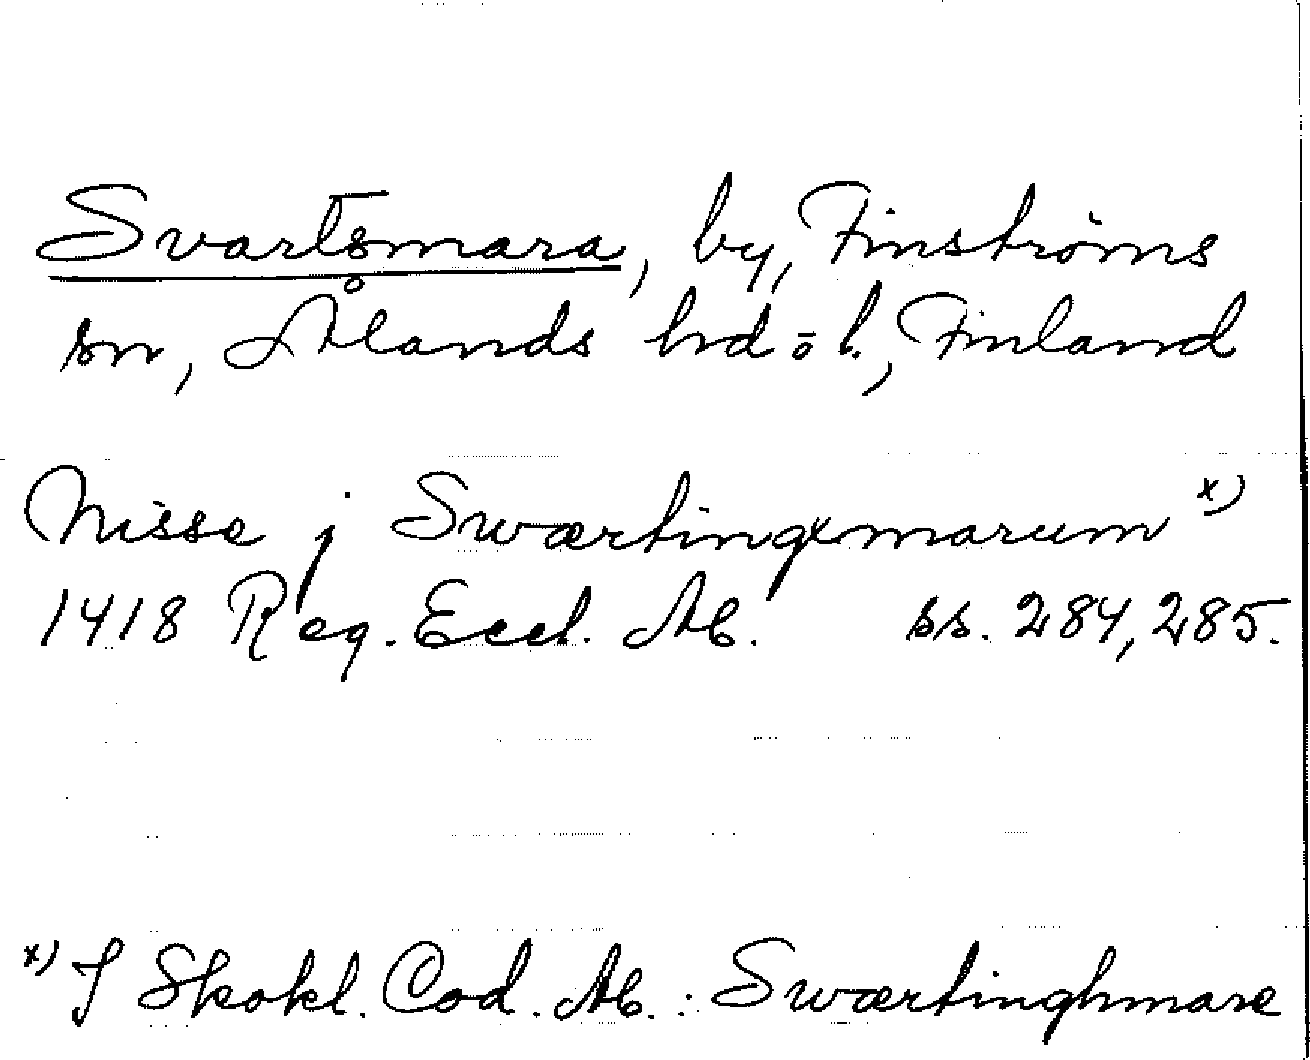 Svartsmara, by, Finströms
sn, Ålands hd o. l., Finland
Nisse j Swærtingxmarum x)
1418 Reg. Eccl. Ab. ss. 284, 285.
x) I Skokl. Cod. Ab.: Swærtinghmare